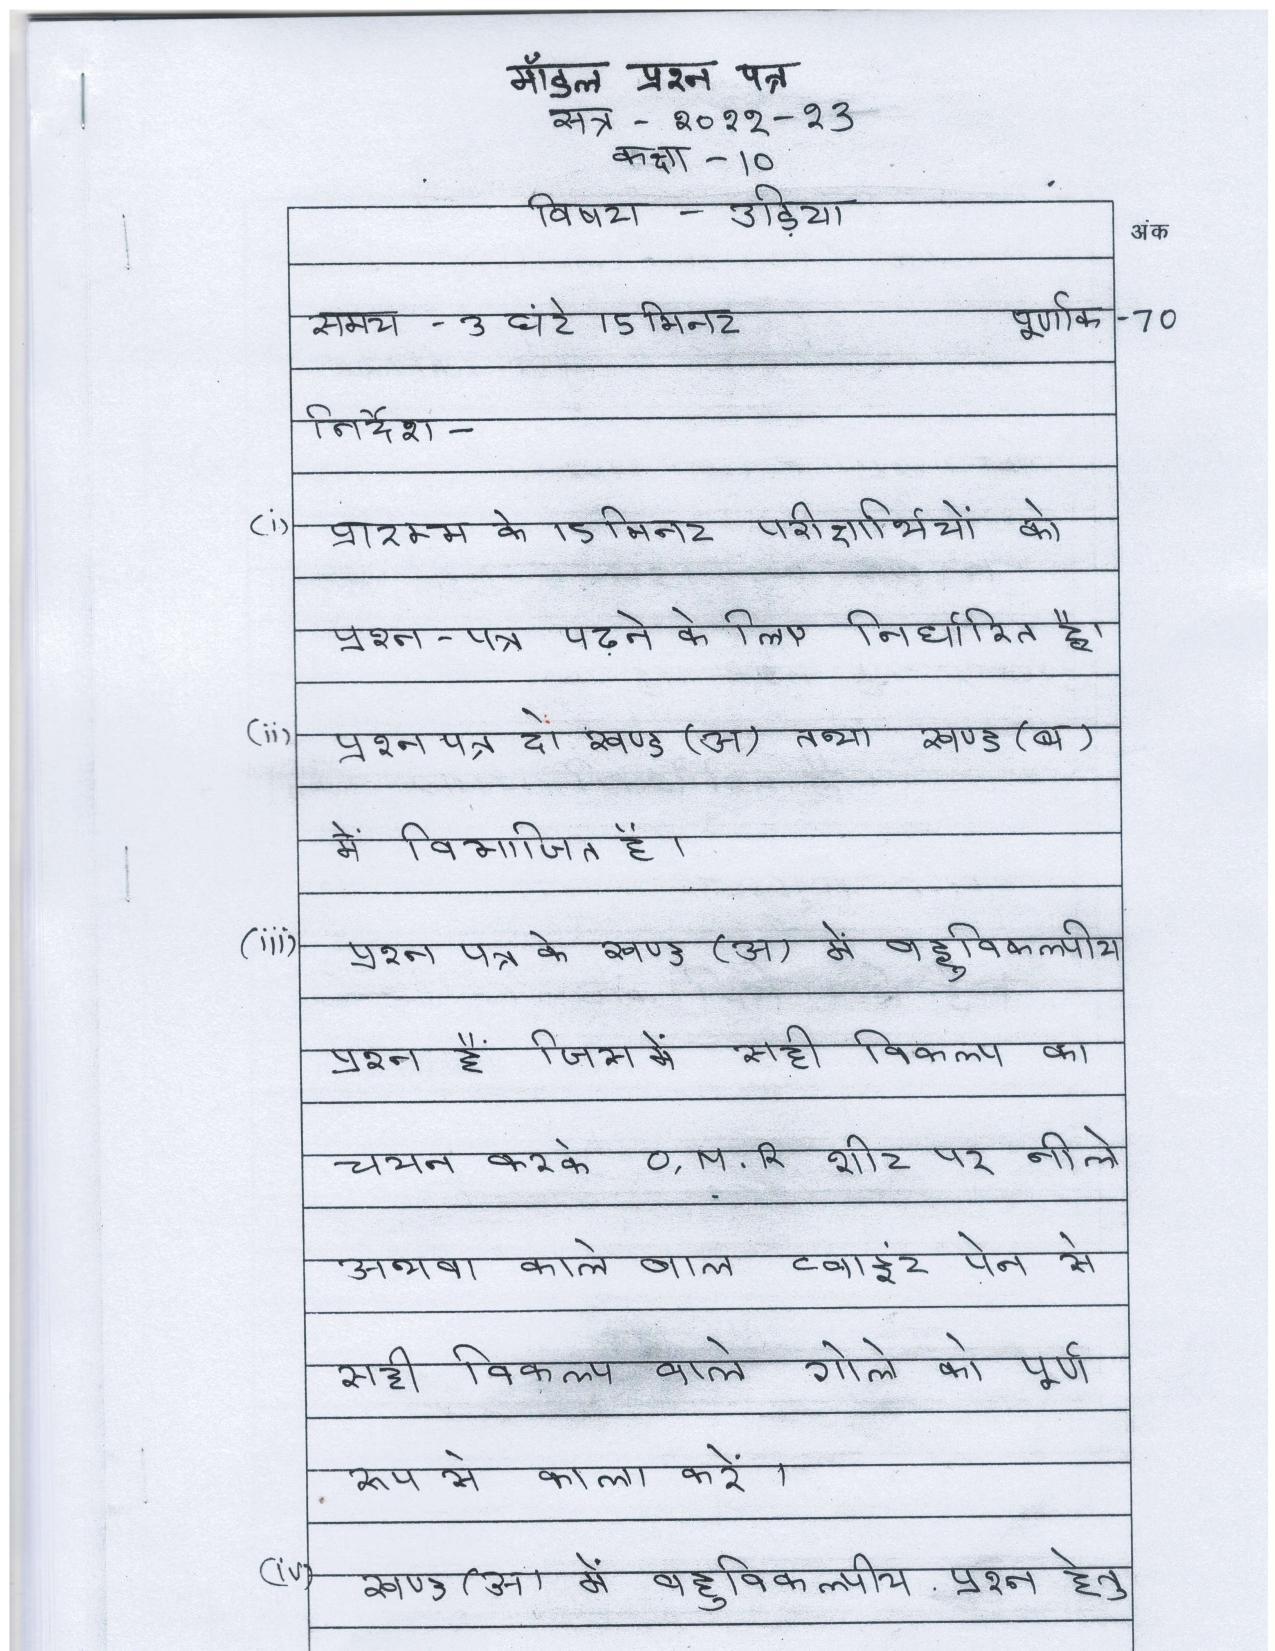 मॉडल प्रश्न पत्र
सत्र - २०२२-२3
कक्षा - 10
विषय - उड़िया
अंक
समय - 3 घंटे 15 मिनट पूर्णांक - 70
निर्देश -
(i) प्रारम्भ के 15 मिनट परीक्षार्थियों को
प्रश्न - पत्र पढ़ने के लिए निर्धारित है।
(ii) प्रश्न पत्र दो खण्ड (अ) तथा खण्ड (ब)
में विभाजित है।
(iii) प्रश्न पत्र के खण्ड (अ) में बहुविकल्पीय
प्रश्न हैं जिसमें सही विकल्प का
चयन करके O.M.R शीट पर नीले
अथवा काले बाल प्वाइंट पेन से
सही विकल्प वाले गोले को पूर्ण
रूप से काला करें।
(iv) खण्ड (अ) में बहुविकल्पीय प्रश्न हेतु